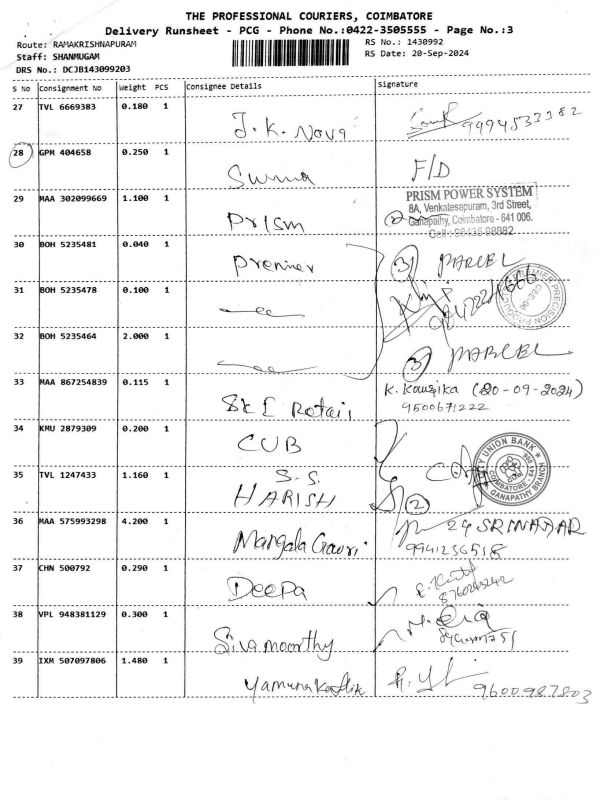 THE PROFESSIONAL COURIERS, COIMBATORE
Delivery Runsheet - PCG - Phone No.:0422-3505555 - Page No.:3
Route: RAMAKRISHNAPURAM
RS No.: 1430992
Staff: SHANMUGAM
RS Date: 20-Sep-2024
DRS No.: DCJB143099203
S No Consignment No Weight PCS Consignee Details Signature
27 TVL 6669383 0.180 1
J.K. Nova 9994533382
28 GPM 404658 0.250 1
F/D
29 MAA 302099669 1.100 1
Prism
PRISM POWER SYSTEM
8A, Venkatesapuram, 3rd Street,
Ganapathy, Coimbatore - 641 006.
Cell : 98435 98882
30 BOH 5235481 0.040 1
Premier 3 PARCEL
31 BOH 5235478 0.100 1
32 BOH 5235464 2.000 1
3 PARCEL
33 MAA 867254839 0.115 1
K. Kousika (20-09-2024)
9500671222
34 KMU 2879309 0.200 1
CUB
CITY UNION BANK
COIMBATORE
GANAPATHY BRANCH
35 TVL 1247433 1.160 1
S.S.
HARISH 2
36 MAA 575993298 4.200 1
Mangala Gowri
9941236518
37 CHN 500792 0.290 1
Deepa
38 VPL 948381129 0.300 1
Sivamoorthy
39 IXM 507097806 1.480 1
Yamuna 9600987803